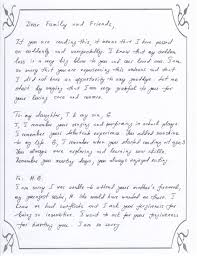 Dear Family and Friends,
If you are reading this, it means that I have passed
on suddenly and unexpectedly. I know that my sudden
loss is a very big blow to you our loved ones. I am
so sorry that you are experiencing this and that
I did not have an opportunity to say goodbye. Let me
start by saying that I am very grateful to you for
your loving care and
To my daughter, T & my son, G
T, I remember your singing and performing in school plays.
I remember your This added
to my life. G, I remember when you started reading at age 3
You always were exploring and learning new skills.
Remember your you always enjoyed
To: H. B.
I am sorry I was unable to attend your mother's funeral,
my youngest sister, H. She would have wanted me there. I
know we had and I ask your forgiveness for
being so insensitive. I want to ask for your forgiveness
for hurting you. I am so sorry